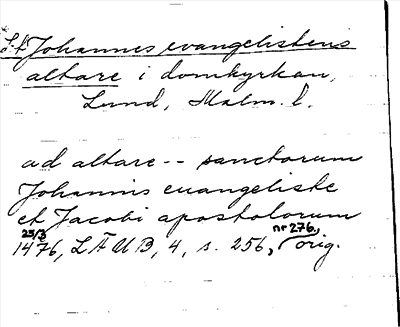 S:t Johannes evangelistens
altare i domkyrkan,
Lund, Malm. l.
ad altare -- sanctorum
Johannis euangeliste
et Jacobi apostolorum
23/3 1476, LÄUB, 4, s. 256, nr 276, orig.